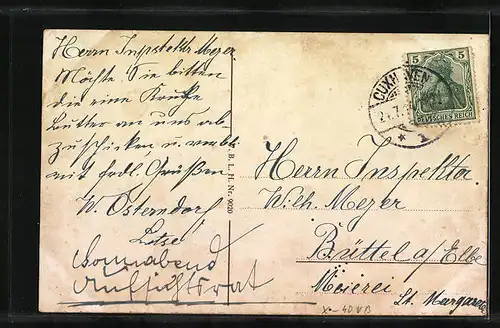 Herrn Inspektr Meyer
Möchte Sie bitten
die eine Kruke
Butter an uns ab-
zuschicken u. verbl.
mit frdl. Grüßen
W. Osterndorf
Lotse
Sonnabend
Aufsichtsrat
B. L. H. Nr. 9020
CUXHAVEN
5 5
DEUTSCHES REICH
Herrn Inspektor
Wilh. Meyer
Büttel a/Elbe
Meierei
St. Margarethen